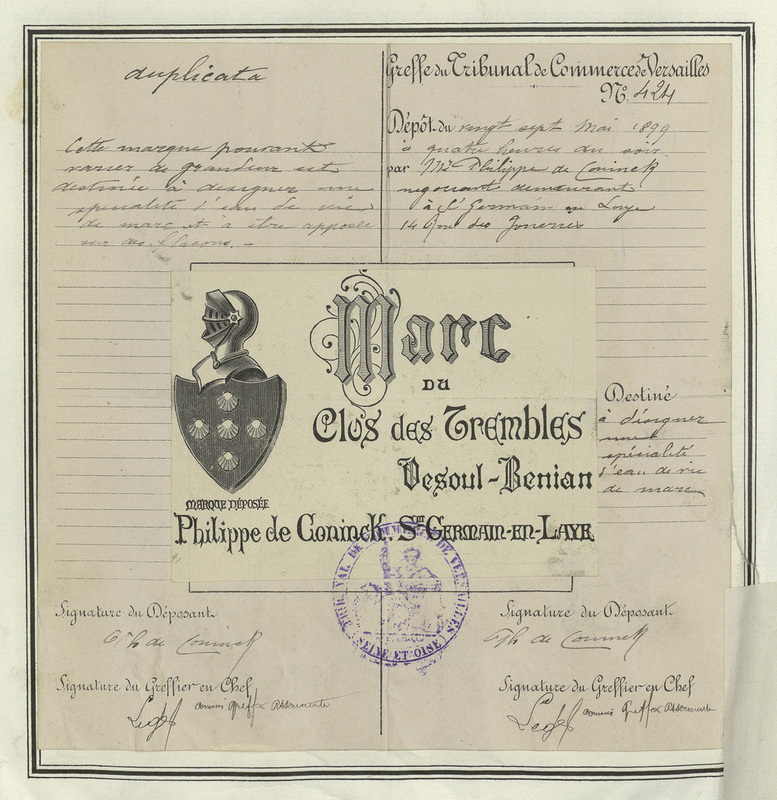 duplicata
Cette marque pouvant
varier de grandeur est
destinée à désigner une
spécialité d'eau de vie
de marc et à être apposée
sur des flacons. –
Greffe du Tribunal de Commerce de Versailles
N° 424
Dépôt du vingt sept Mai 1899
à quatre heures du soir
par Mr Philippe de Coninck
négociant demeurant
à St Germain en Laye
14 Rue des
Marc
DU
Clos des Trembles
Vesoul-Benian
MARQUE DÉPOSÉE
Philippe de Coninck. St GERMAIN-EN-LAYE
Destiné
à désigner
une
spécialité
d'eau de vie
de marc
TRIBUNAL DE COMMERCE DE VERSAILLES
(SEINE ET OISE)
Signature du Déposant
Ph de Coninck
Signature du Greffier en Chef
commis Greffier Assermenté
Signature du Déposant
Ph de Coninck
Signature du Greffier en Chef
commis Greffier Assermenté